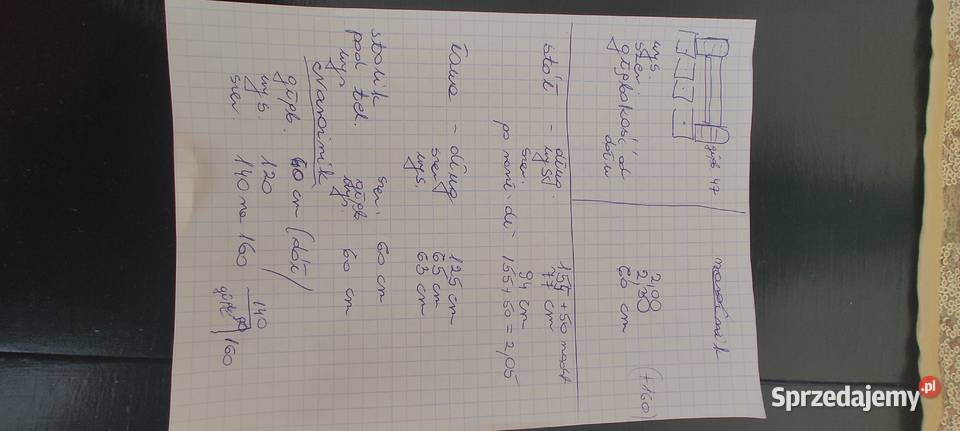 głęb 47
narożnik
wys. 2,00
szer. (+160)
głębokość od 60 cm
dołu
stół - dług. 155 + 50 nadst
wys. 77 cm
szer. 94 cm
dł. 155 + 50 = 2,05
Ława - dług 125 cm
szer 65 cm
wys. 63 cm
stolik szer. 60 cm
pod tel. głęb.
wys. 60 cm
narożnik
głęb. 60 cm (dół)
wys. 120 140
szer. 140 na 160 160
Sprzedajemy.pl